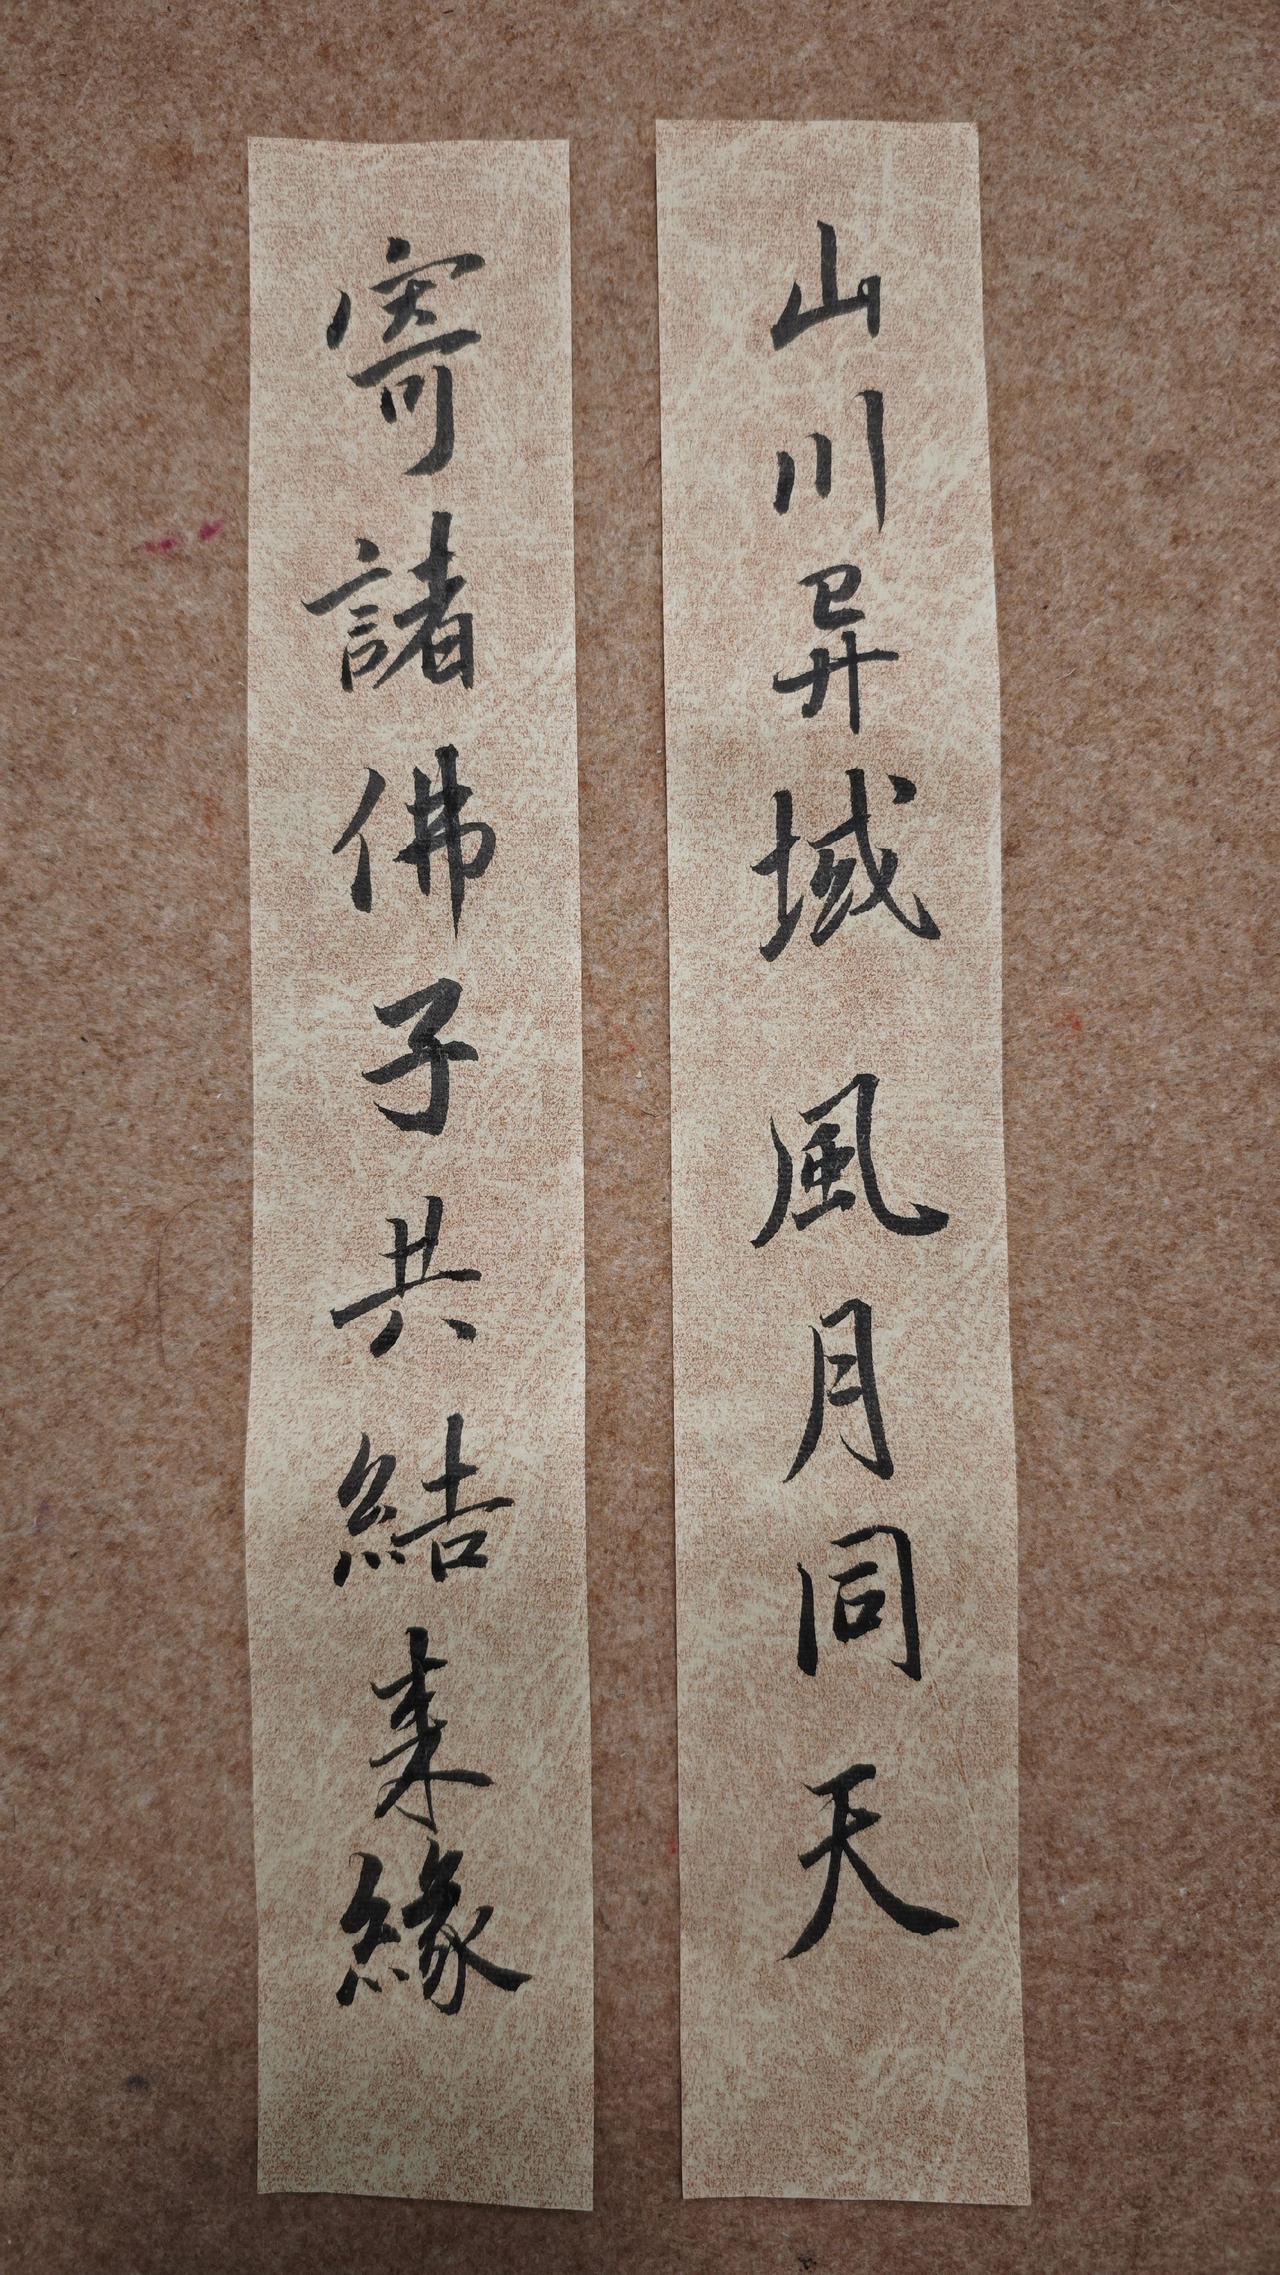 山川异域風月同天
寄諸佛子共結来緣